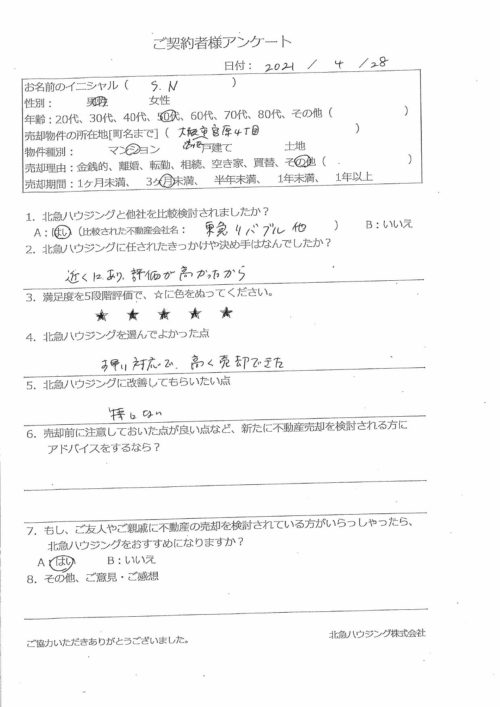 ご契約者様アンケート
日付： 2021 / 4 / 28
お名前のイニシャル（ S.N ）
性別： 男性 女性
年齢：20代、30代、40代、50代、60代、70代、80代、その他（ ）
売却物件の所在地[町名まで]（ 大阪市宮原4丁目 ）
物件種別： マンション 戸建て 土地
売却理由：金銭的、離婚、転勤、相続、空き家、買替、その他（ ）
売却期間：1ヶ月未満、 3ヶ月未満、 半年未満、 1年未満、 1年以上
1．北急ハウジングと他社を比較検討されましたか？
A：はい（比較された不動産会社名： 東急リバブル 他 ） B：いいえ
2．北急ハウジングに任されたきっかけや決め手はなんでしたか？
近くにあり、評価が高かったから
3．満足度を5段階評価で、☆に色をぬってください。
★ ★ ★ ★ ★
4．北急ハウジングを選んでよかった点
対応で、高く売却できた
5．北急ハウジングに改善してもらいたい点
特にない
6．売却前に注意しておいた点が良い点など、新たに不動産売却を検討される方に
アドバイスをするなら？
7．もし、ご友人やご親戚に不動産の売却を検討されている方がいらっしゃったら、
北急ハウジングをおすすめになりますか？
A：はい B：いいえ
8．その他、ご意見・ご感想
ご協力いただきありがとうございました。
北急ハウジング株式会社